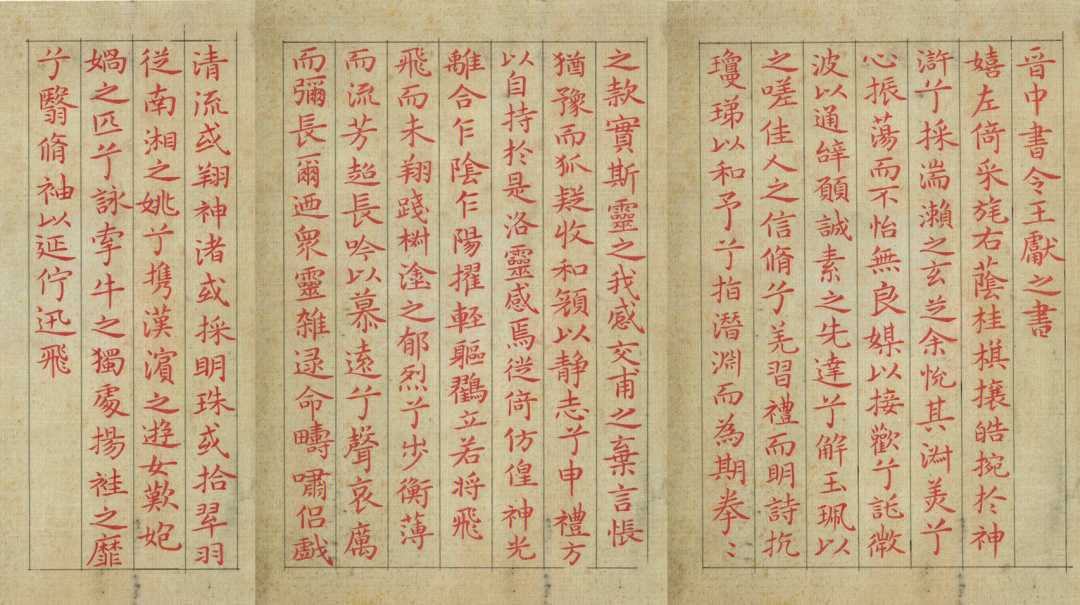 晋中書令王獻之書
嬉左倚采旄右蔭桂棋攘皓捥於神
滸兮採湍瀨之玄芝余悅其淑美兮
心振蕩而不怡無良媒以接歡兮託微
波以通辞願誠素之先達兮解玉珮以
之嗟佳人之信脩兮羌習禮而明詩抗
瓊珶以和予兮指潛淵而為期拳〻
之款實斯靈之我感交甫之棄言悵
猶豫而狐疑收和顏以静志兮申禮方
以自持於是洛靈感焉徙倚仿偟神光
離合乍陰乍陽擢軽軀鸖立若将飛
飛而未翔踐椒塗之郁烈兮步衡薄
而流芳超長吟以慕遠兮聲哀厲
而彌長爾迺衆靈雜遝命疇嘯侶戲
清流或翔神渚或採明珠或拾翠羽
從南湘之姚兮携漢濱之遊女歎匏
媧之匹兮詠牽牛之獨處揚袿之靡
兮翳脩袖以延佇迅飛